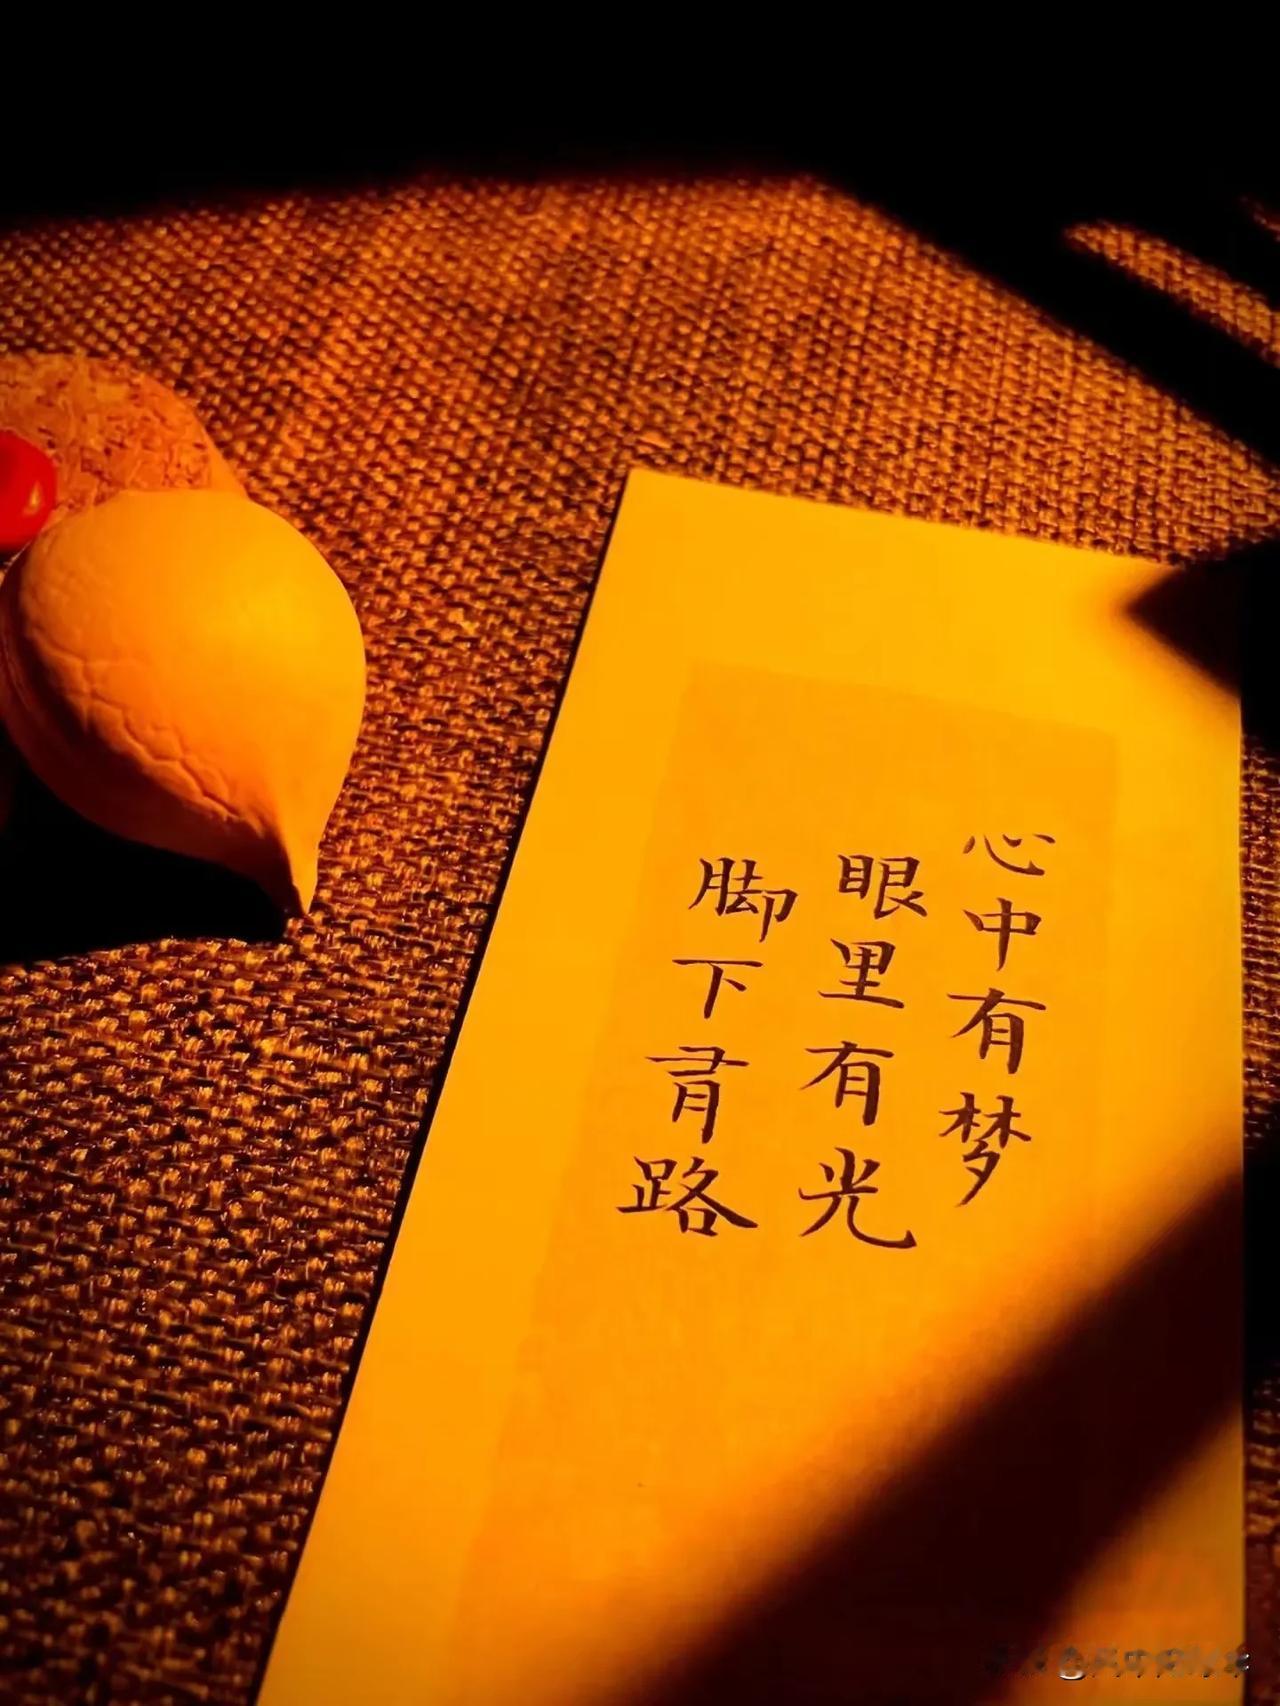 心中有梦
眼里有光
脚下有路